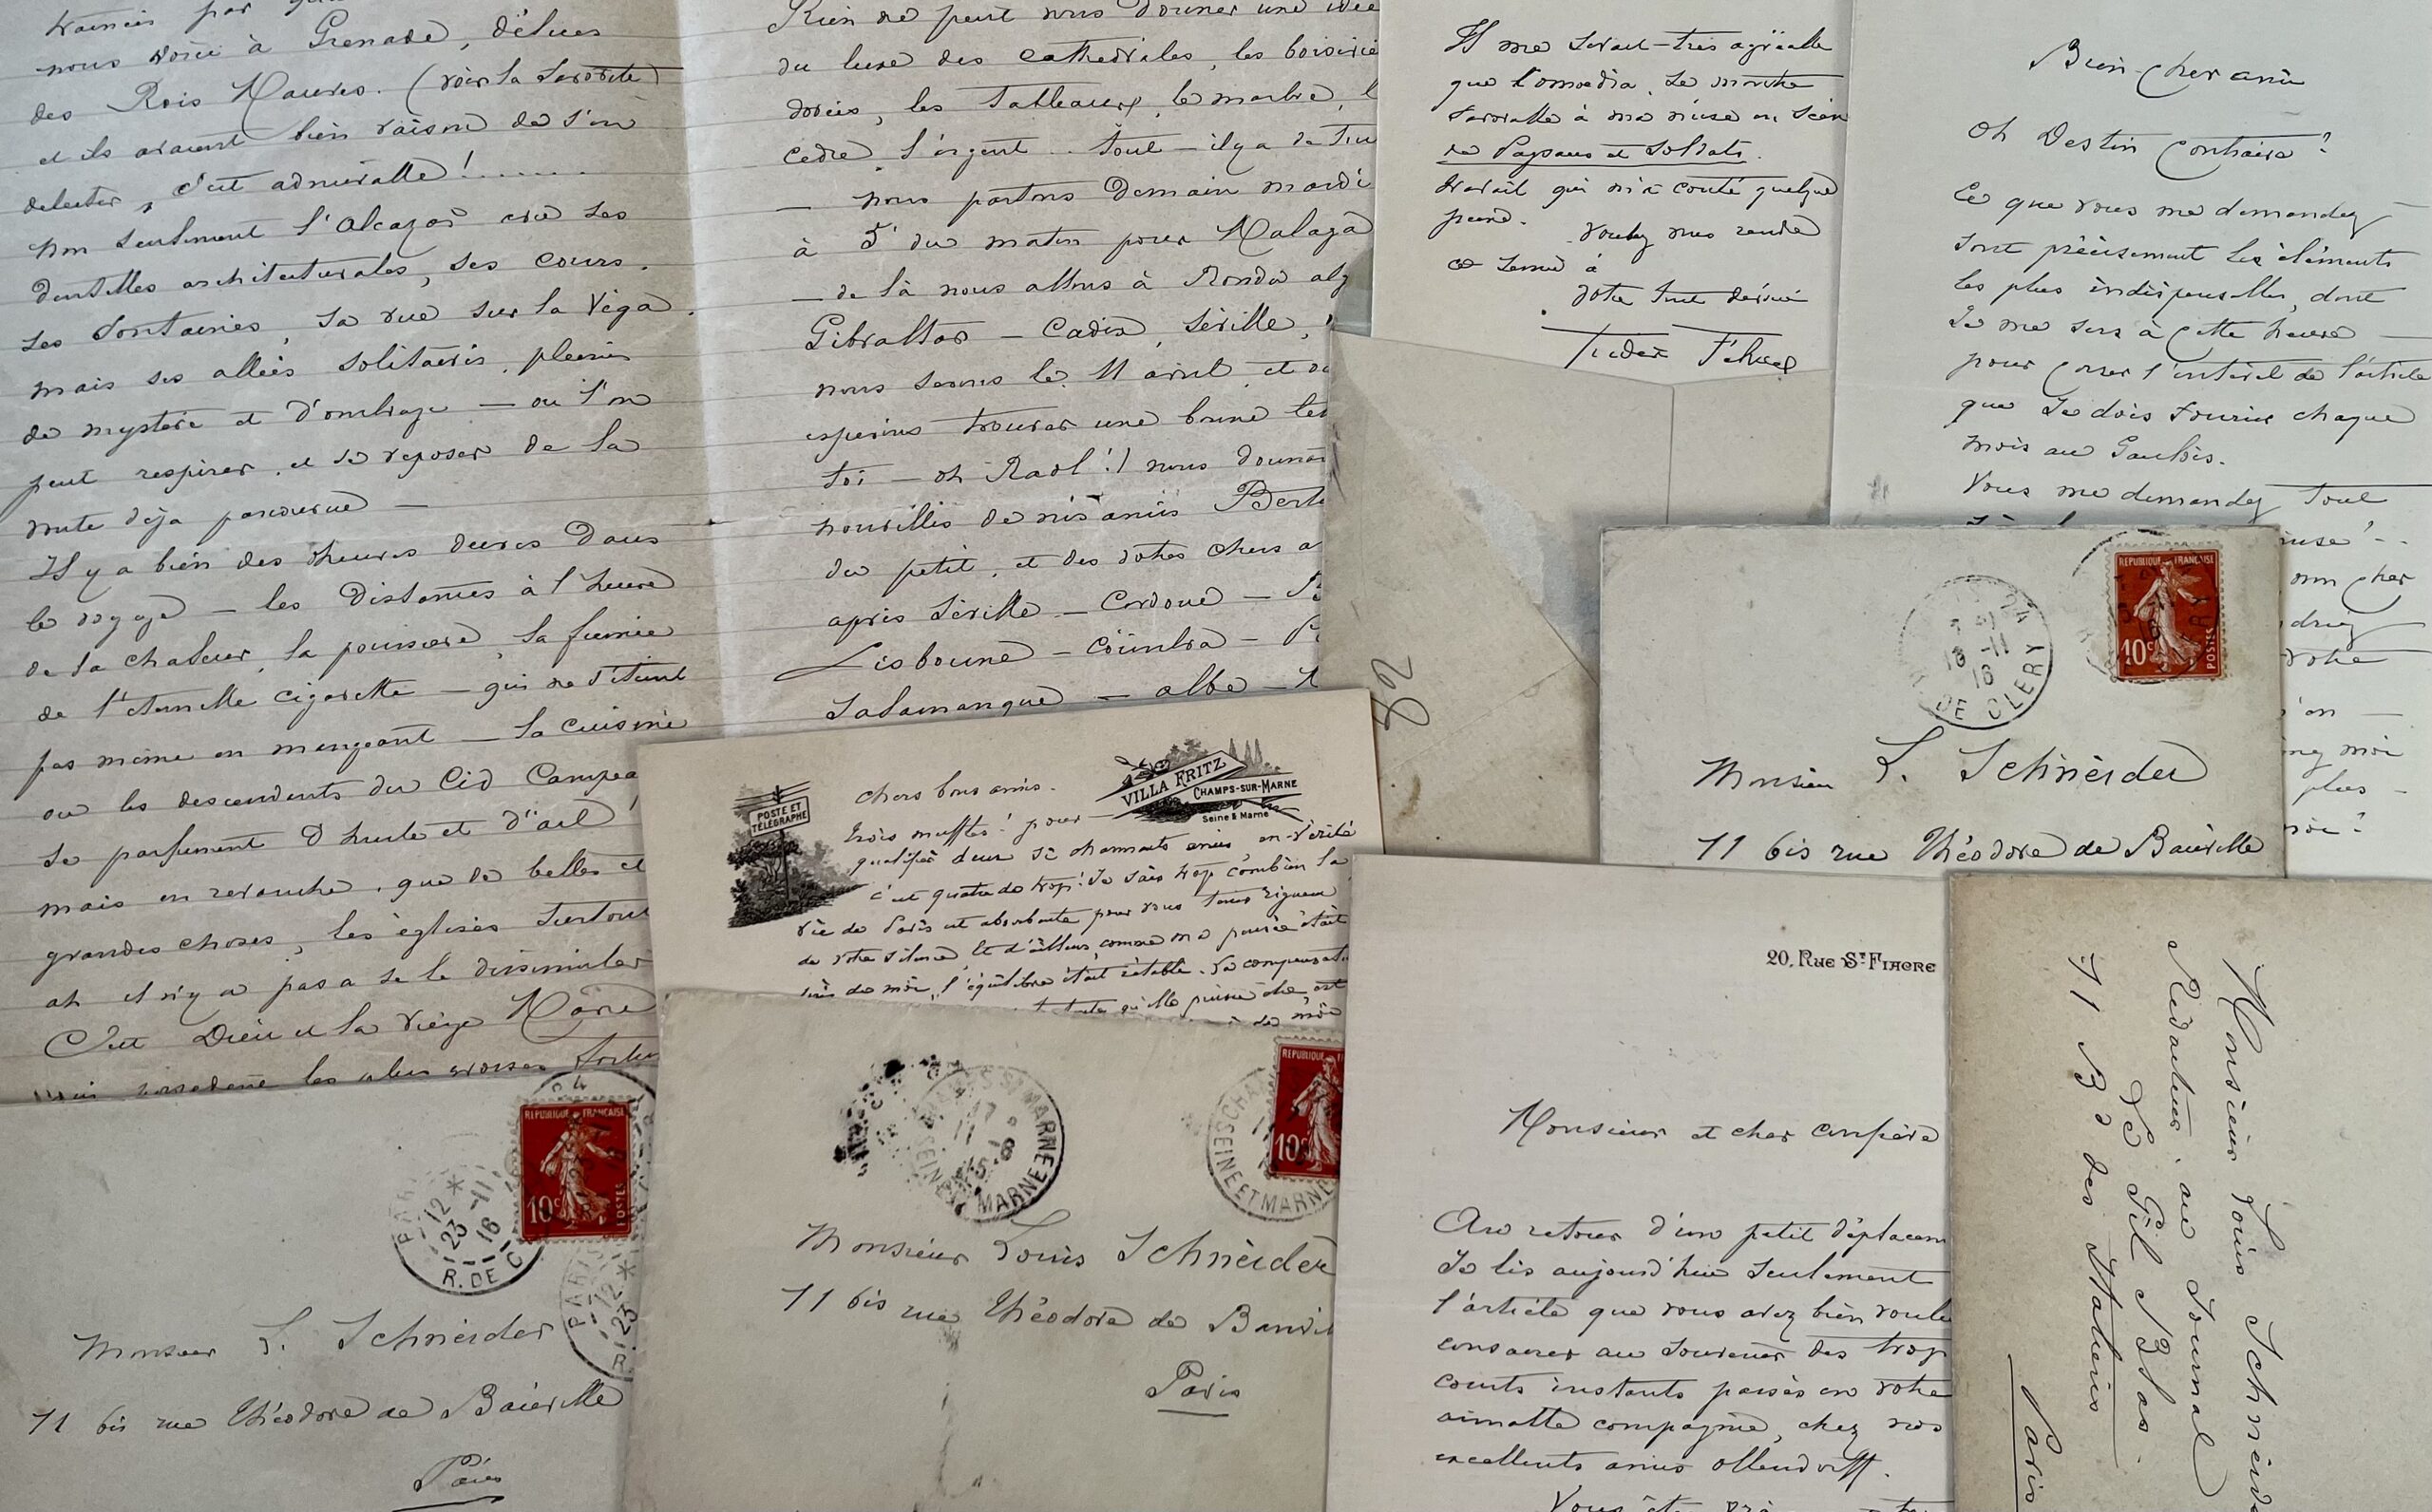 nous voici à Grenade, délices
des Rois Maures. (voir la Favorite)
et ils avaient bien raison de s'en
delecter, c'est admirable!.......
non seulement l'Alcazar avec ses
dentelles architecturales, ses cours.
ses fontaines, sa vue sur la Véga.
mais ses allées solitaires, pleines
de mystère et d'ombrage — où l'on
peut respirer, et se reposer de la
route déja parcourue —
Il y a bien des heures dures dans
le voyage — les distances à l'heure
de la chaleur, la poussière, la fumée
de l'éternelle cigarette — qui ne s'éteint
pas même en mangeant — la cuisine
ou les descendants du Cid Campea
se parfument d'huile et d'ail!
mais en revanche, que de belles et
grandes choses, les églises surtout
ah il n'y a pas a se le dissimuler
C'est Dieu et la Vierge Marie
qui possedent les plus grosses fortu
Rien ne peut vous donner une idée
du luxe des cathedrales, les boiserie
dorées, les tableaux, le marbre, l
cedre l'argent .. tout — il y a de tou
— nous partons demain mardi
à 5h du matin pour Malaga
— de là nous allons à Ronda alg
Gibraltar — Cadix, Séville,
nous serons le 11 avril, et où
esperons trouver une bonne let
toi — oh Raol!) nous donnan
nouvelles de nos amis Berte
du petit, et des votres chers a
après Séville — Cordoue —
Lisbonne — Coïmbra —
Salamanque — albe —
Il me serait très agréable
que Comoedia, se montre
favorable à ma mise en scèn
de Paysans et Soldats.
travail qui m'a couté quelque
peine.
Voulez vous rendre
ce service à
votre tout dévoué
Bien cher ami
Oh Destin Contraire!
Ce que vous me demandez
sont précisement les éléments
les plus indispensables, dont
je me sers à cette heure —
pour corser l'intérêt de l'article
que je dois fournir chaque
mois au Gaulois.
Vous me demandez tout
mon cher
votre
'on —
moi
plus —
32
REPUBLIQUE FRANÇAISE
10c
POSTES
18 -11
16
DE CLERY
Monsieur L. Schneider
11 bis rue Théodore de Banville
POSTE ET
TÉLÉGRAPHE
VILLA FRITZ
CHAMPS-SUR-MARNE
Seine & Marne
Chers bons amis.
trois muffles! pour
qualifier deux si charmants amis en vérité
c'est quatre de trop! Je sais trop combien la
vie de Paris est absorbante pour vous tenir rigueur
de votre silence, Et d'ailleurs, comme ma pensée était
l'équilibre était rétabli. La compensat
REPUBLIQUE FR
10c
17 -8
15
MARNE
SEINE ET MARNE
Monsieur Louis Schneider
11 bis rue Théodore de Banvil
Paris
REPUBLIQUE FRANÇAISE
10c
POSTES
PARIS
12 *
23 -11
16
R. DE C
PARIS
12 *
23
R.
Monsieur L. Schneider
11 bis rue Théodore de Banville
Paris
20, RUE ST FIACRE
Monsieur et cher confrère
Au retour d'un petit déplacem
Je lis aujourd'hui seulement
l'article que vous avez bien voulu
consacrer au souvenir des trop
courts instants passés en votre
aimable compagnie, chez nos
excellents amis Ollendorff.
Monsieur Louis Schneide
Rédacteur au Journal
Le Gil Blas.
11 Bd des Italiens
Paris